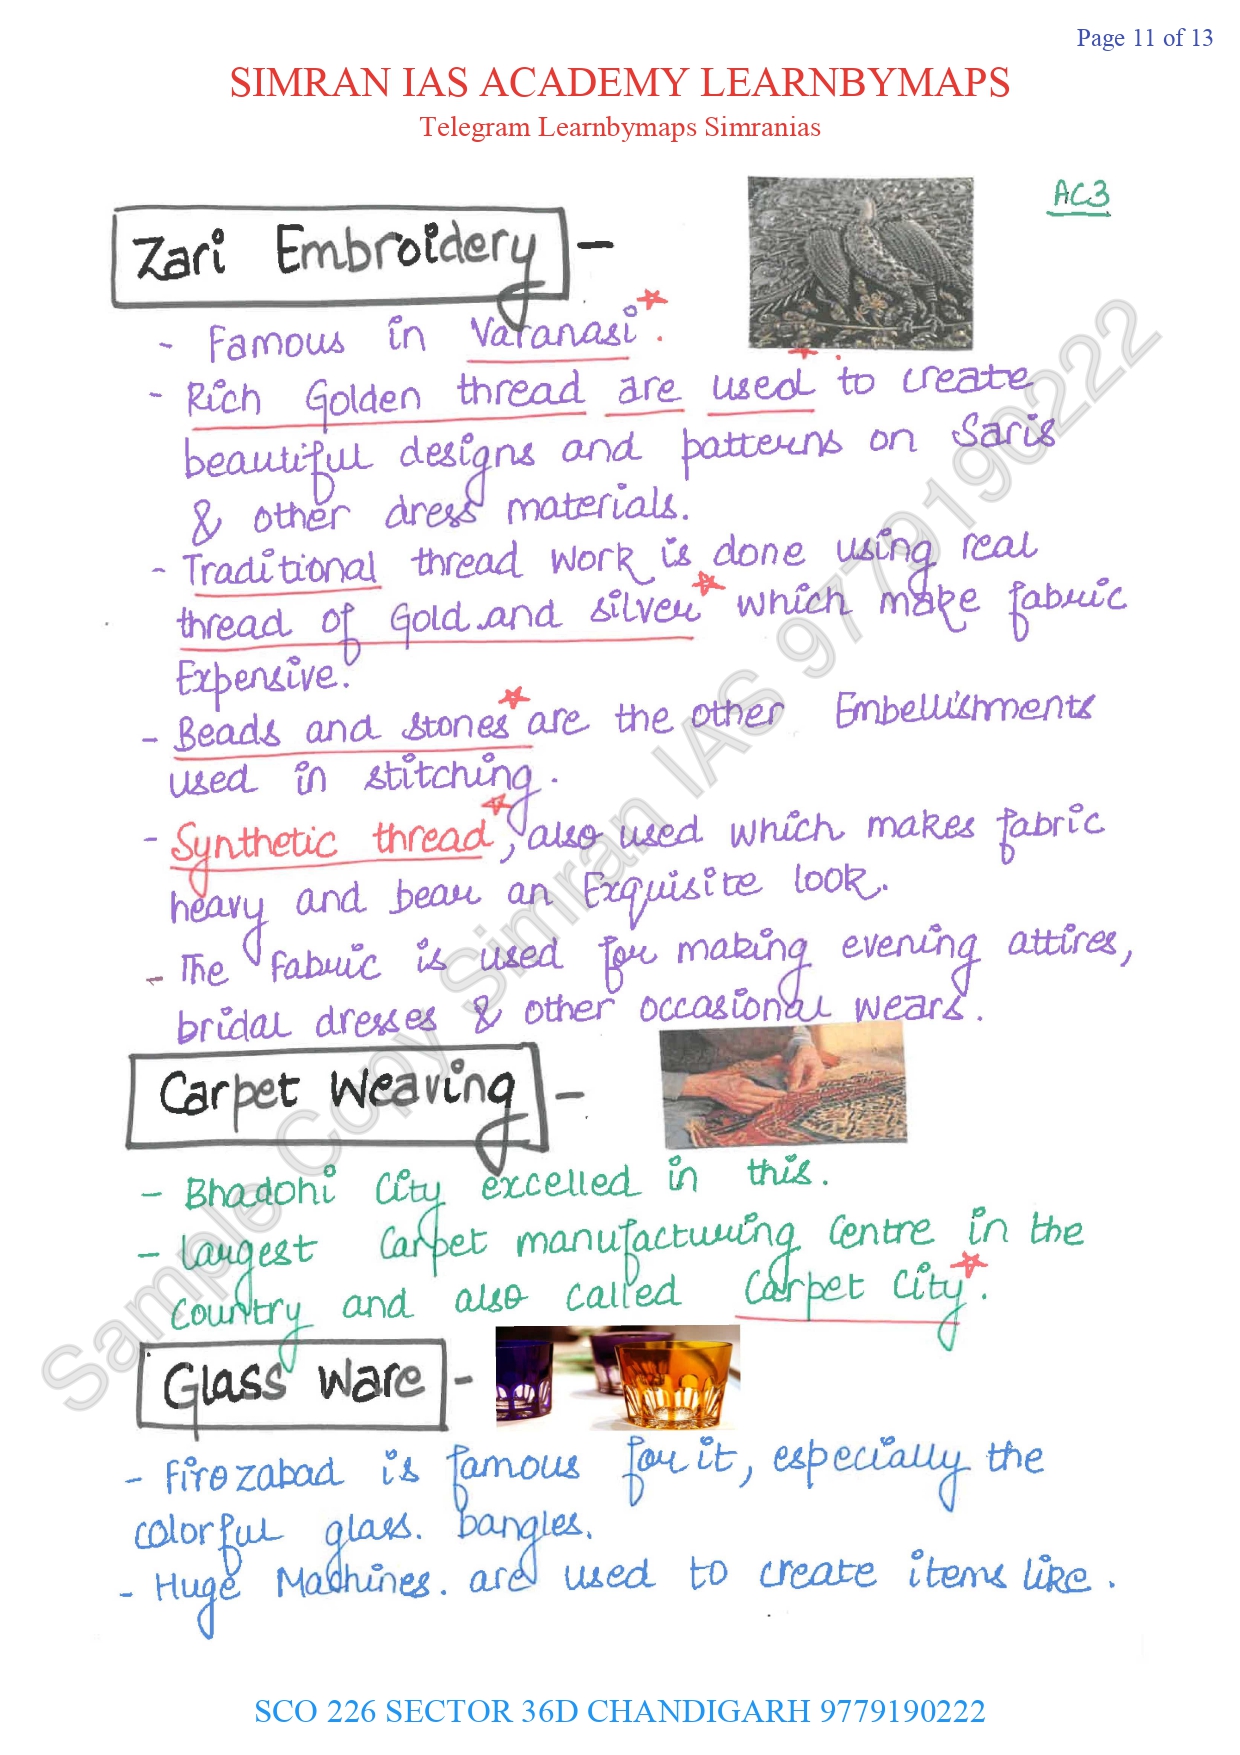 Page 11 of 13
SIMRAN IAS ACADEMY LEARNBYMAPS
Telegram Learnbymaps Simranias
AC3
Zari Embroidery -
- Famous in Varanasi.
- Rich Golden thread are used to create
beautiful designs and patterns on Saris
& other dress materials.
- Traditional thread work is done using real
thread of Gold and silver which make fabric
Expensive.
- Beads and stones are the other Embellishments
used in stitching.
- Synthetic thread, also used which makes fabric
heavy and bear an Exquisite look.
- The fabric is used for making evening attires,
bridal dresses & other occasional wears.
Carpet Weaving -
- Bhadohi City excelled in this.
- largest Carpet manufacturing Centre in the
Country and also called Carpet City.
Glass Ware -
- Firozabad is famous for it, especially the
colorful glass. bangles.
- Huge Machines. are used to create items like.
Sample Copy Simran IAS 9779190222
SCO 226 SECTOR 36D CHANDIGARH 9779190222